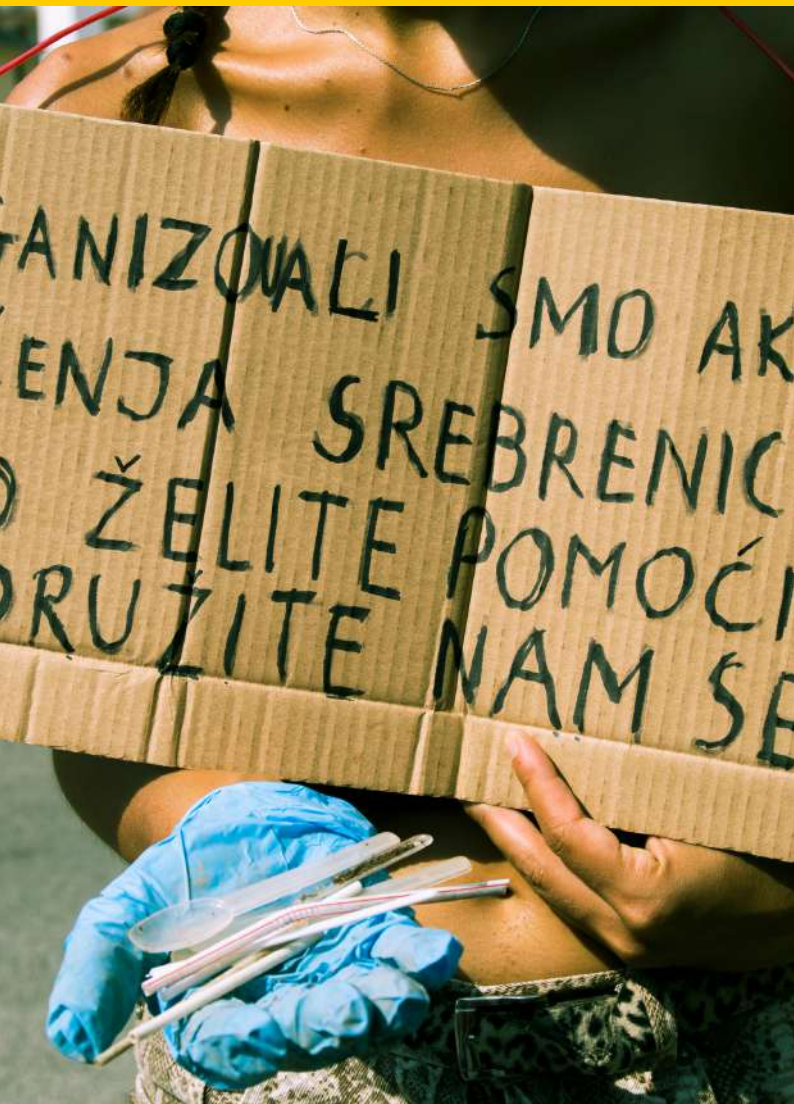 GANIZOVALI SMO AK
ENJA SREBRENIC
O ŽELITE POMOĆI
DRUŽITE NAM SE